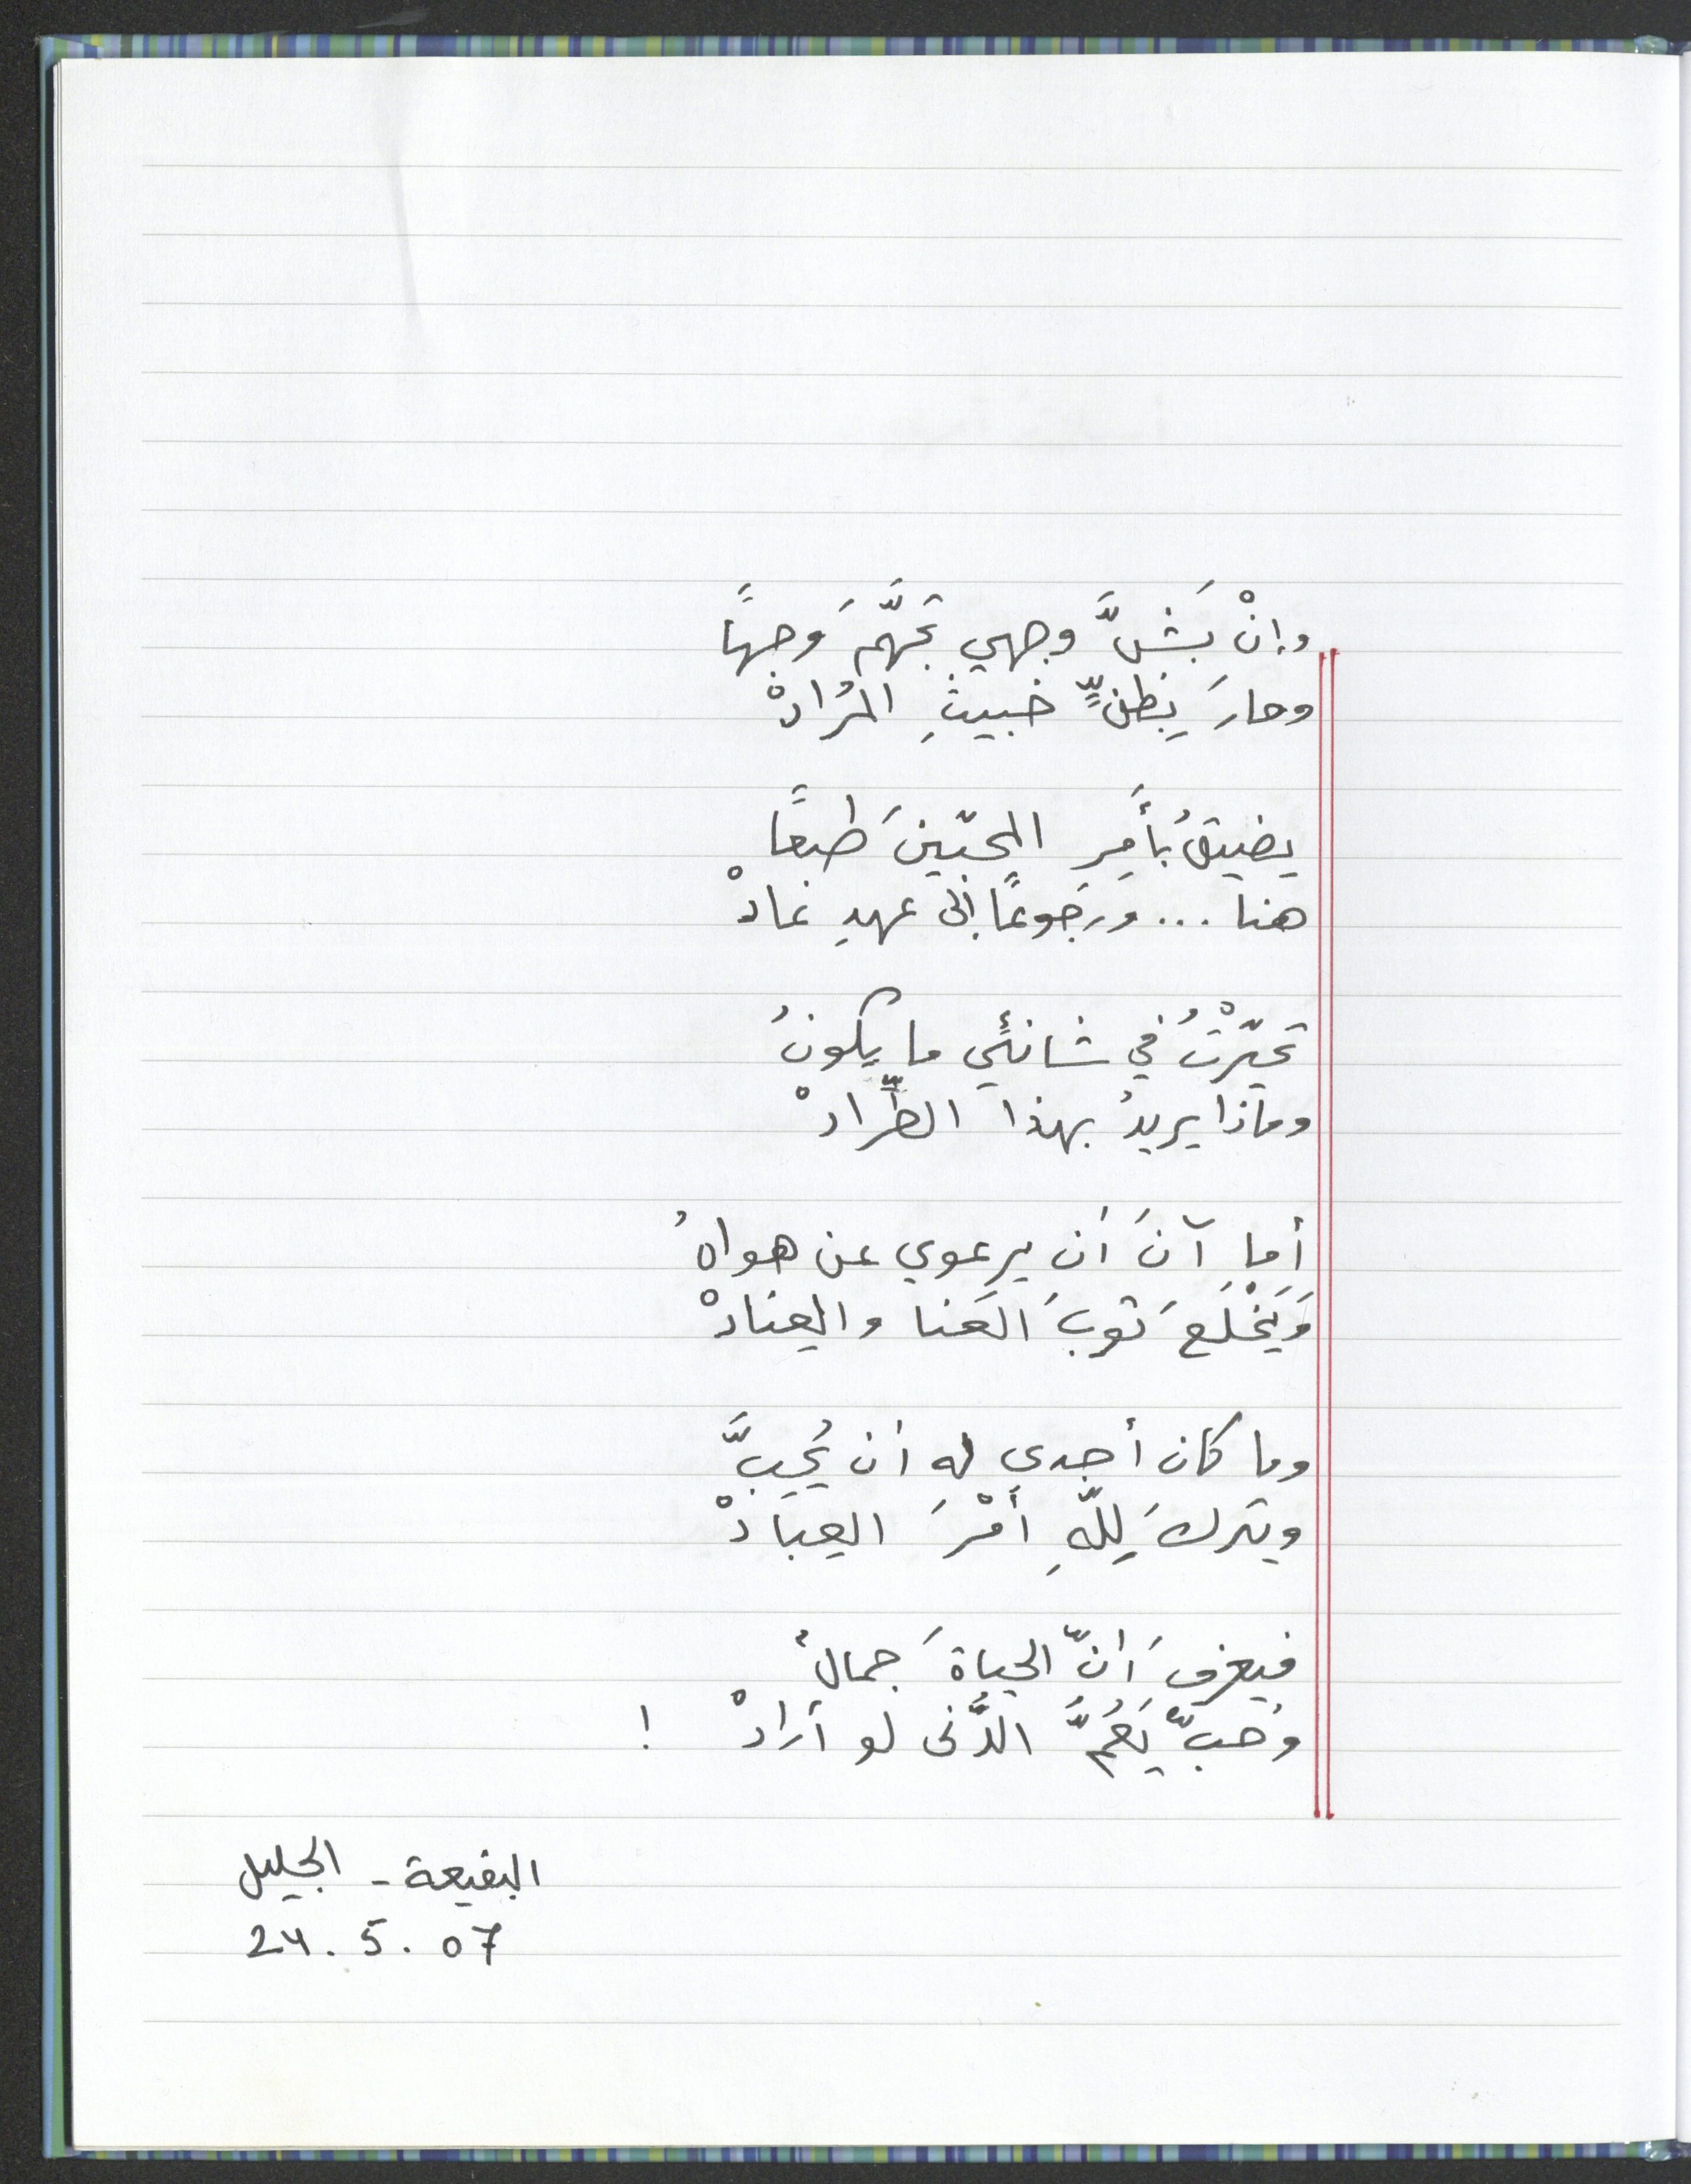 وإنْ بَشَّ وجهي تجَهَّمَ وجهًا
وحارَ بِظنٍّ خبيثِ المُرادْ
يضيقُ بأَمرِ المحبّينَ طبعًا
هنا ... ورجوعًا إلى عهدِ عادْ
تحيّرْتُ في شانئي ما يكونُ
وماذا يريدُ بهذا الطِّرادْ
أما آنَ أن يرعوي عن هواهُ
وَيَخْلَعَ ثوبَ العَنا والعِنادْ
وما كان أجدى له أن يُحِبَّ
ويتركَ لِلّهِ أمْرَ العِبادْ
فيعرفَ أنّ الحياةَ جمالٌ
وحبٌّ يَعُمُّ الدُّنى لو أرادْ !
البقيعة - الجليل
24. 5. 07